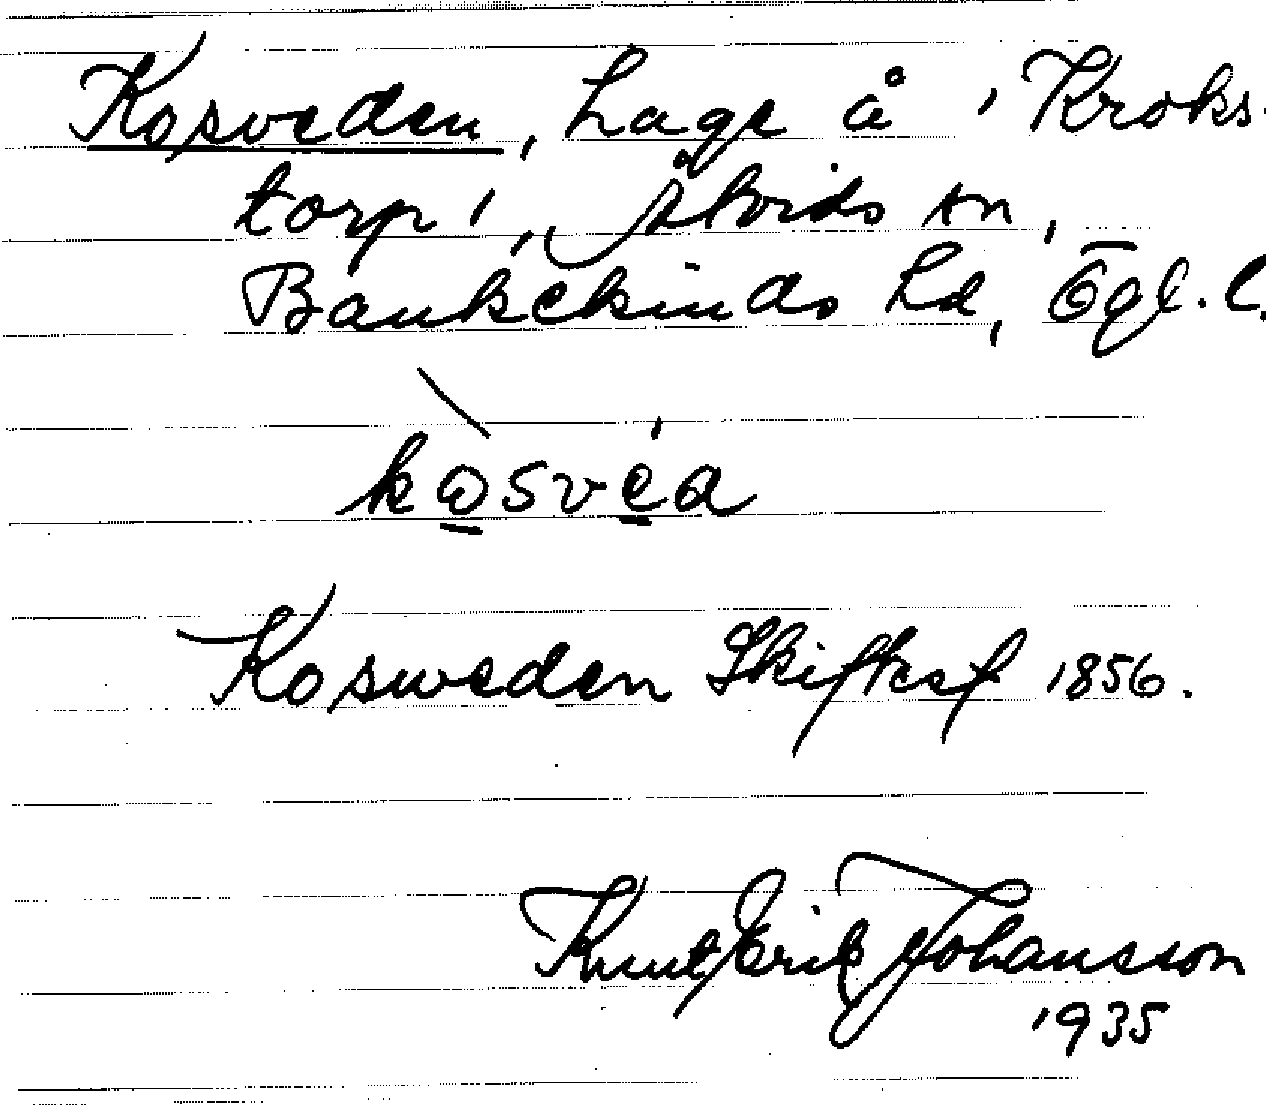 Kosveden, hage å 'Kroks-
torp', Åtvids sn,
Bankekinds hd, Ögl. l.
kosvéa
Kosweden Skiftesf 1856.
Knut Erik Johansson
1935